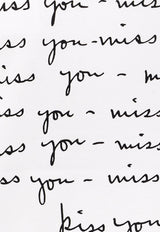 ss you - miss
ss you - miss
iss you - m
ss you - miss
iss you - miss
ss you - miss
kiss you